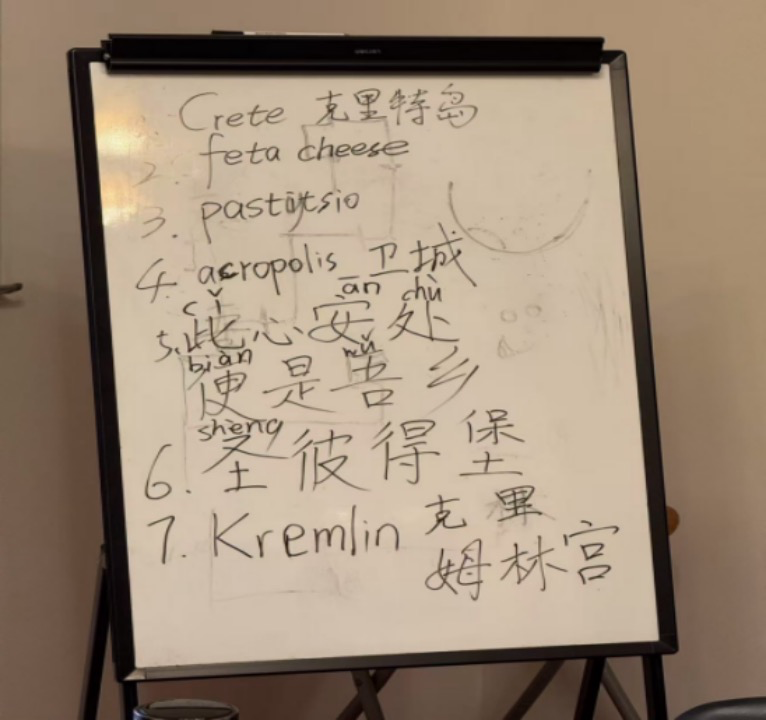 Crete 克里特岛
2. feta cheese
3. pastitsio
4. acropolis 卫城
cǐ ān chù
5. 此心安处
biàn wú
便是吾乡
shèng
6. 圣彼得堡
7. Kremlin 克里
姆林宫